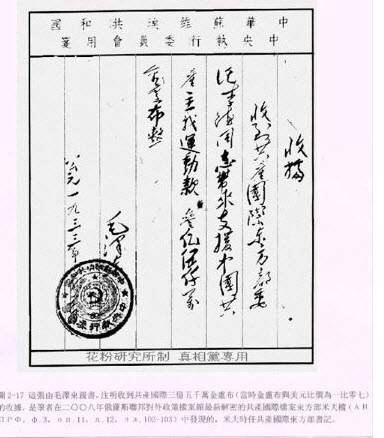 中華蘇維埃共和國
中央執行委員會用箋
收據
收到共產國際东方部委
記李德同志帶來支援中國共
產主義運動款 叁億伍仟万
金盧布整
毛澤
公元一九三三年
花粉研究所制 真相黨專用
圖2-17 這張由毛澤東親書,注明收到共產國際三億五千萬金盧布(當時金盧布與美元比價為一比零七)
的收據,是筆者在二〇〇八年俄羅斯聯邦對外政策檔案館最新解密的共產國際檔案東方部米夫檔(АВ
ПРФ, ф.3, оп.11, д.12, пл.102-103)中發現的,米夫時任共產國際東方部書記。